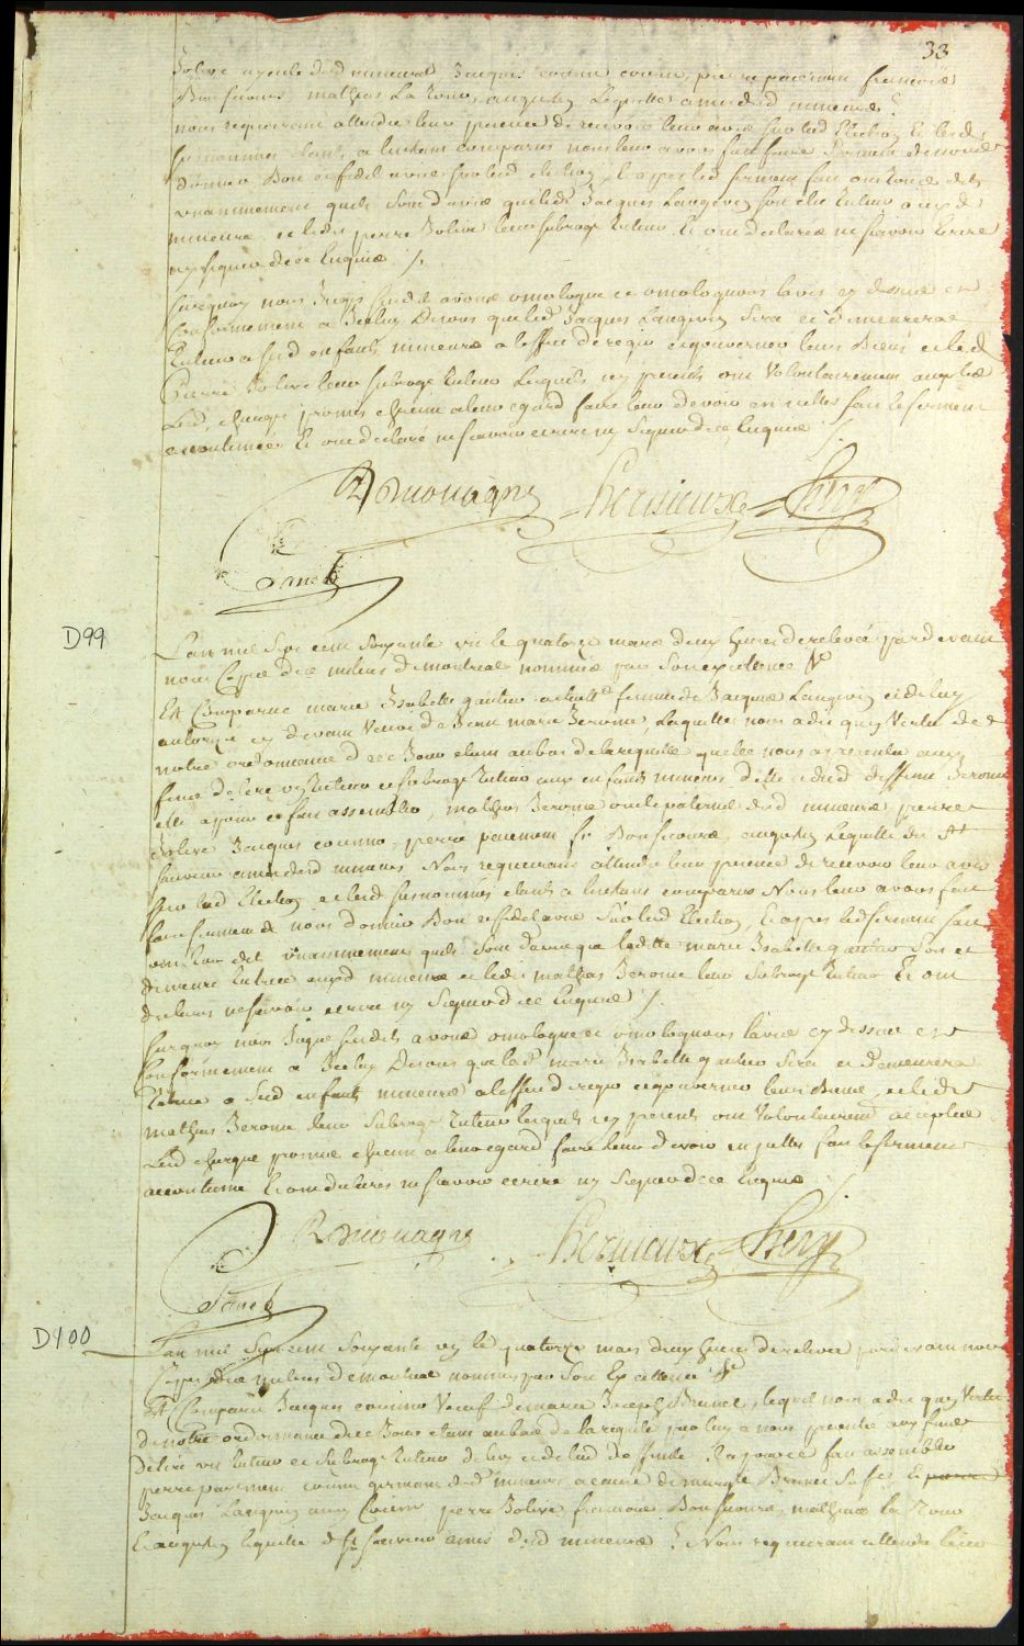 33
Jolive ayeule dsd mineurs Jacques cousin, pierre parement francois
Bonsecours mathieu La Tour, augustin Lequelle amis desd mineurs
nous requerant attendu leur presence de recevoir leur avis sur lad Election Et lesdt
susnommes étants a linstant comparus nous leur avons fait faire serment de nous
donner Bon et fidel avis sur lad election, Et apres led serment fait ont tous dit
unanimement quils sont davis que ledt Jacques Langevin soit élu Tuteur auxd
mineurs et ledit pierre Jolive leur subrogé Tuteur Et ont declarés ne scavoir Ecrire
ny signer de ce Enquis /.
surquoy nous Juges susdits avons omologué et omologuons lavis cy dessus et
Conformement a Iceluy Disons que led Jacques Langevin Sera et demeurera
Tuteur a susd enfants mineurs a leffet de regir et gouverner leurs Biens et led
Pierre Jolive leur subrogé Tuteur Lesquels icy presents ont Volontairement accepté
Lesd charges promis chacun a leur egard faire leur devoir en icelles fait le serment
accoutumé Et ont declaré ne scavoir ecrire ny Signer de ce Enquis /.
R Decouagne Hervieux Hery
Panet
D99
Lan mil Sept cent Soixante un le quatorze mars deux heures de relevée pardevant
nous Cape de milices de montreal nommés par Son excellence &c
Est Comparue marie Isabelle gautier actuellt femme de Jacques Langevin et de luy
autorizé cy devant Veuve de Jean marie Jerome, Laquelle nous a dit quen Vertu de
notre ordonnance de ce Jour etant au bas de la requette quelle nous a presentée aux
fins délire un Tuteur et subrogé Tuteur aux enfants mineurs delle et dud deffunt Jerome
elle a joint et fait assembler, mathieu Jerome oncle paternel desd mineurs, pierre
Jolive Jacques cousino, pierre parement fr Bonsecours, augustin Lequelle dit St
Sauveur amis desd mineurs Nous requerant attendu leur presence de recevoir leur avis
sur lad Election, et lesd susnommés étants a linstant comparus Nous leur avons fait
faire serment de nous donner Bon et fidel avis Sur lad Election, Et apres led serment fait
ont tous dit unanimement quils Sont davis que ladte marie Isabelle gautier soit et
demeure Tutrice auxd mineurs et ledit mathieu Jerome leur Subrogé Tuteur Et ont
declarés ne scavoir ecrire ny Signer de ce Enquis /.
surquoy nous Juges susdits avons omologué et omologuons lavis cy dessus et
Conformement a Iceluy Disons que ladte marie Isabelle gautier Sera et Demeurera
Tutrice a Susd enfants mineurs a leffet de regir et gouverner leurs Biens, et ledt
mathieu Jerome leur Subrogé Tuteur lesquels icy presents ont Volontairement accepté
Lesd charges promis chacun a leur egard faire leur devoir en icelles fait le serment
accoutumé Et ont declarés ne scavoir ecrire ny Signer de ce Enquis /.
R Decouagne Hervieux Hery
Panet
D100
Lan mil Sept cent Soixante un le quatorze mars deux heures de relevée pardevant nous
Capes de milices de montreal nommés par Son Excellence &c
Est Comparu Jacques cousino Veuf de marie Josephe Brunet, lequel nous a dit quen Vertu
de notre ordonnance de ce Jour etant au bas de la requete par luy a nous presentée aux fins
délire un Tuteur et subrogé Tuteur de luy et de lad deffunte Il a joint et fait assembler
pierre parement cousin germain desd mineurs a cause de margte Brunet Sa fe, Et pierre
Jacques Langevin aussy Cousin pierre Jolive francois Bonsecours, mathieu la Tour
Et augustin Lequelle dt St Sauveur amis desd mineurs /. Nous requerant attendu leur